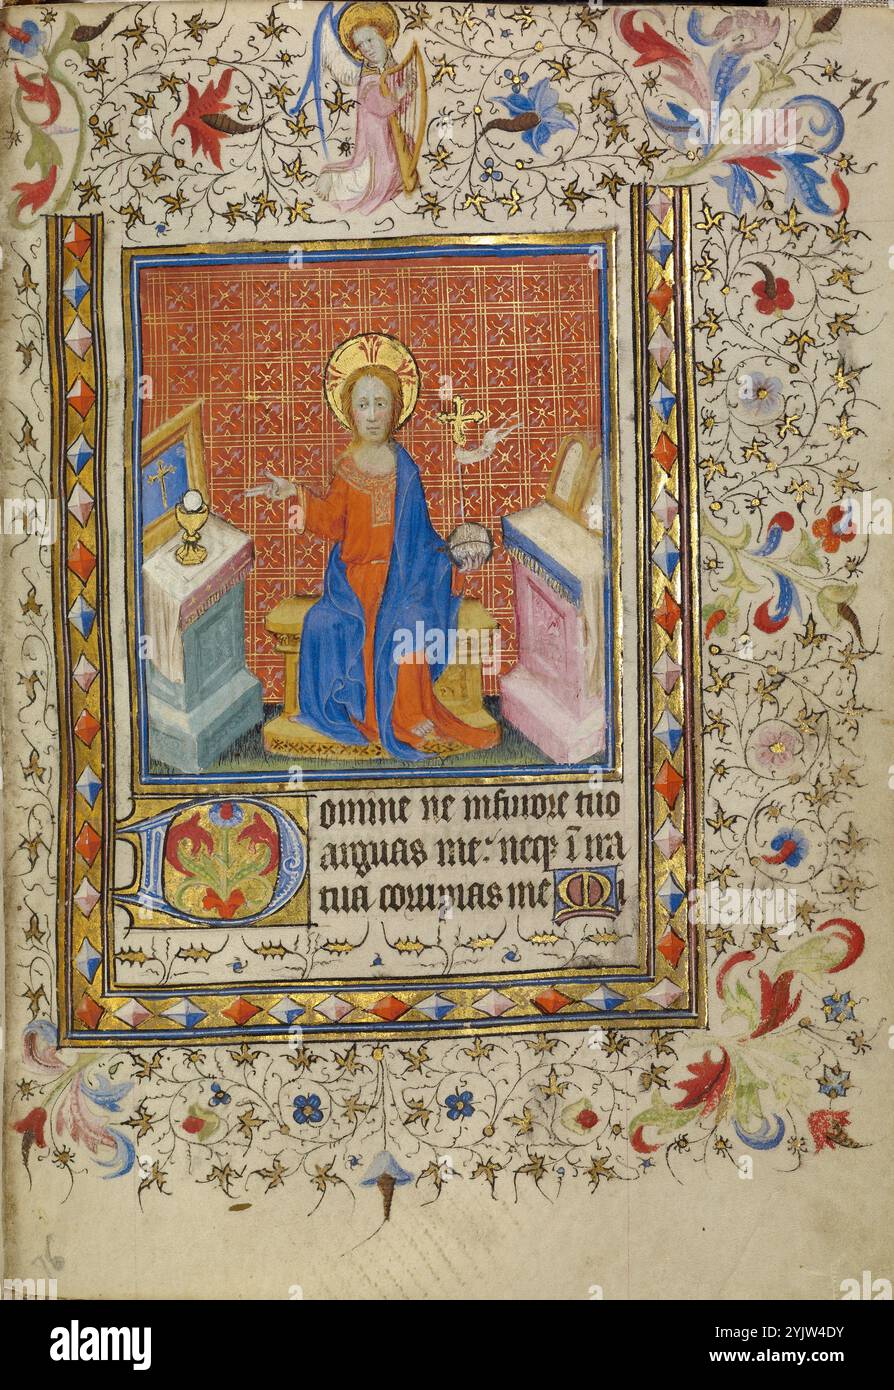 75
Domine ne in furore tuo
arguas me: neqz i ira
tua corripias me Mi
76
alamy
Image ID: 2YJW4DY
www.alamy.com